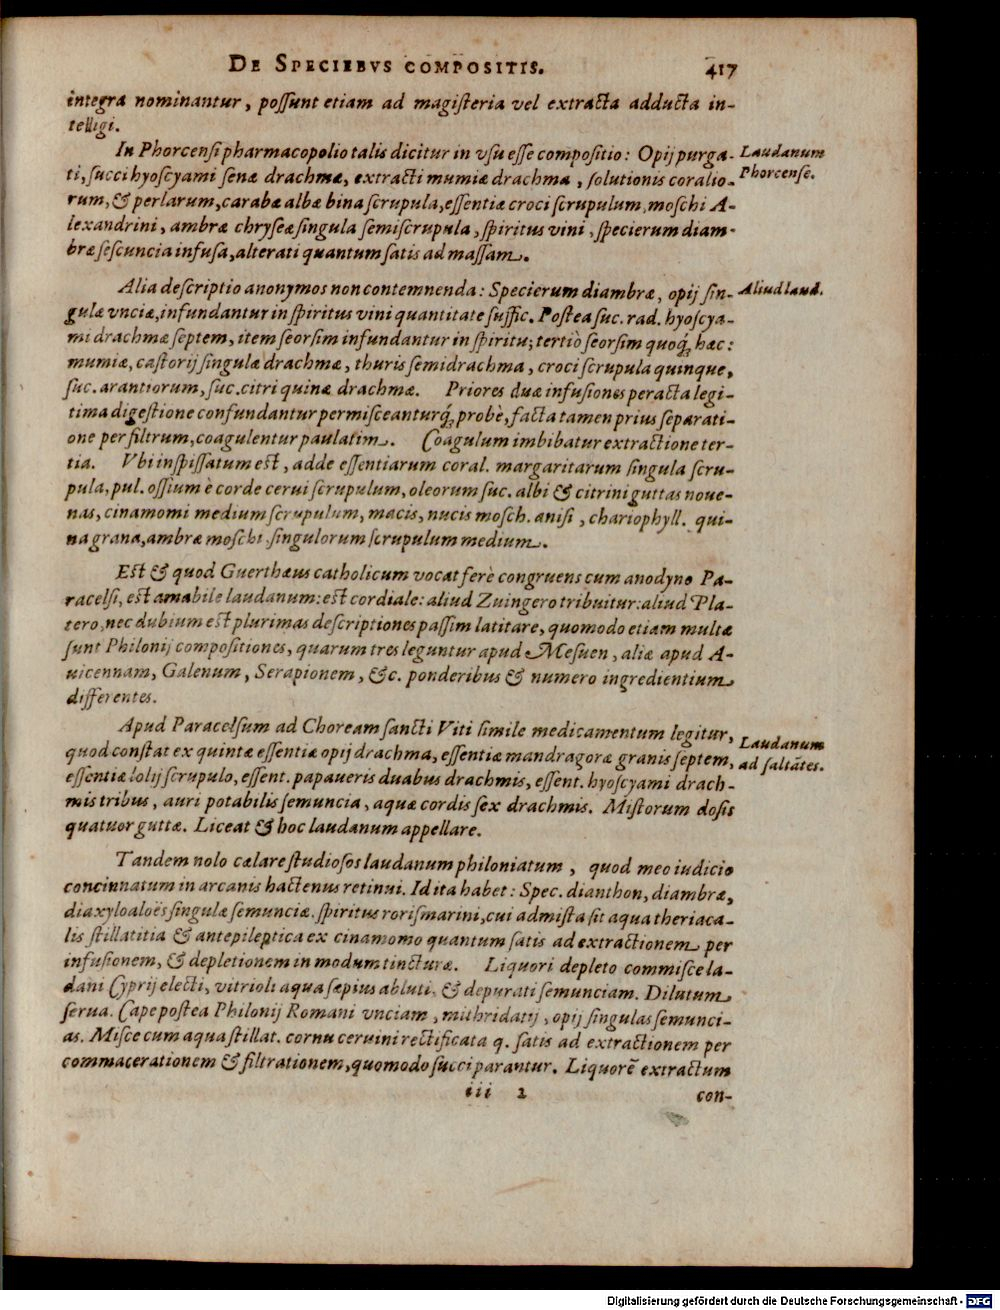 DE SPECIEBVS COMPOSITIS. 417
integra nominantur, possunt etiam ad magisteria vel extracta adducta in-
telligi.
In Phorcensi pharmacopolio talis dicitur in vsu esse compositio: Opij purga-
ti, succi hyoscyami senæ drachmæ, extracti mumiæ drachma, solutionis coralio-
rum, & perlarum, carabæ albæ bina scrupula, essentiæ croci scrupulum, moschi A-
lexandrini, ambræ chryseæ singula semiscrupula, spiritus vini, specierum diam-
bræ sescuncia infusa, alterati quantum satis ad massam.
Laudanum
Phorcense.
Alia descriptio anonymos non contemnenda: Specierum diambræ, opij sin-
gulæ vnciæ, infundantur in spiritus vini quantitate suffic. Postea suc. rad. hyoscya-
mi drachmæ septem, item seorsim infundantur in spiritu; tertiò seorsim quoq́; hæc:
mumiæ, castorij singulæ drachmæ, thuris semidrachma, croci scrupula quinque,
suc. arantiorum, suc. citri quinæ drachmæ. Priores duæ infusiones peracta legi-
tima digestione confundantur permisceanturq́; probè, facta tamen prius separati-
one per filtrum, coagulentur paulatim. Coagulum imbibatur extractione ter-
tia. Vbi inspissatum est, adde essentiarum coral. margaritarum singula scru-
pula, pul. ossium è corde cerui scrupulum, oleorum suc. albi & citrini guttas noue-
nas, cinamomi medium scrupulum, macis, nucis mosch. anisi, chariophyll. qui-
na grana, ambræ moschi singulorum scrupulum medium.
Aliud laud.
Est & quod Guerthæus catholicum vocat ferè congruens cum anodyno Pa-
racelsi, est amabile laudanum: est cordiale: aliud Zuingero tribuitur: aliud Pla-
tero, nec dubium est plurimas descriptiones passim latitare, quomodo etiam multæ
sunt Philonij compositiones, quarum tres leguntur apud Mesuen, aliæ apud A-
uicennam, Galenum, Serapionem, &c. ponderibus & numero ingredientium
differentes.
Apud Paracelsum ad Choream sancti Viti simile medicamentum legitur,
quod constat ex quintæ essentiæ opij drachma, essentiæ mandragoræ granis septem,
essentiæ lolij scrupulo, essent. papaueris duabus drachmis, essent. hyoscyami drach-
mis tribus, auri potabilis semuncia, aquæ cordis sex drachmis. Mistorum dosis
quatuor guttæ. Liceat & hoc laudanum appellare.
Laudanum
ad saltātes.
Tandem nolo cælare studiosos laudanum philoniatum, quod meo iudicio
concinnatum in arcanis hactenus retinui. Id ita habet: Spec. dianthon, diambræ,
diaxyloaloës singulæ semunciæ, spiritus rorismarini, cui admista sit aqua theriaca-
lis stillatitia & antepileptica ex cinamomo quantum satis ad extractionem per
infusionem, & depletionem in modum tincturæ. Liquori depleto commisce la-
dani Cyprij electi, vitrioli aqua sæpius abluti, & depurati semunciam. Dilutum
serua. Cape postea Philonij Romani vnciam, mithridatij, opij singulas semunci-
as. Misce cum aqua stillat. cornu ceruini rectificata q. satis ad extractionem per
commacerationem & filtrationem, quomodo succi parantur. Liquorē extractum
iii 2 con-
Digitalisierung gefördert durch die Deutsche Forschungsgemeinschaft - DFG